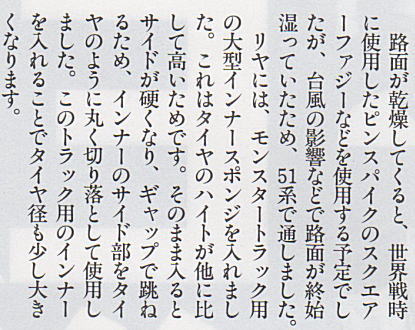 路面が乾燥してくると、世界戦時
に使用したピンスパイクのスクエア
ーファジーなどを使用する予定でし
たが、台風の影響などで路面が終始
湿っていたため、51系で通しました。
リヤには、モンスタートラック用
の大型インナースポンジを入れまし
た。これはタイヤのハイトが他に比
して高いためです。そのまま入ると
サイドが硬くなり、ギャップで跳ね
るため、インナーのサイド部をタイ
ヤのように丸く切り落として使用し
ました。このトラック用のインナー
を入れることでタイヤ径も少し大き
くなります。